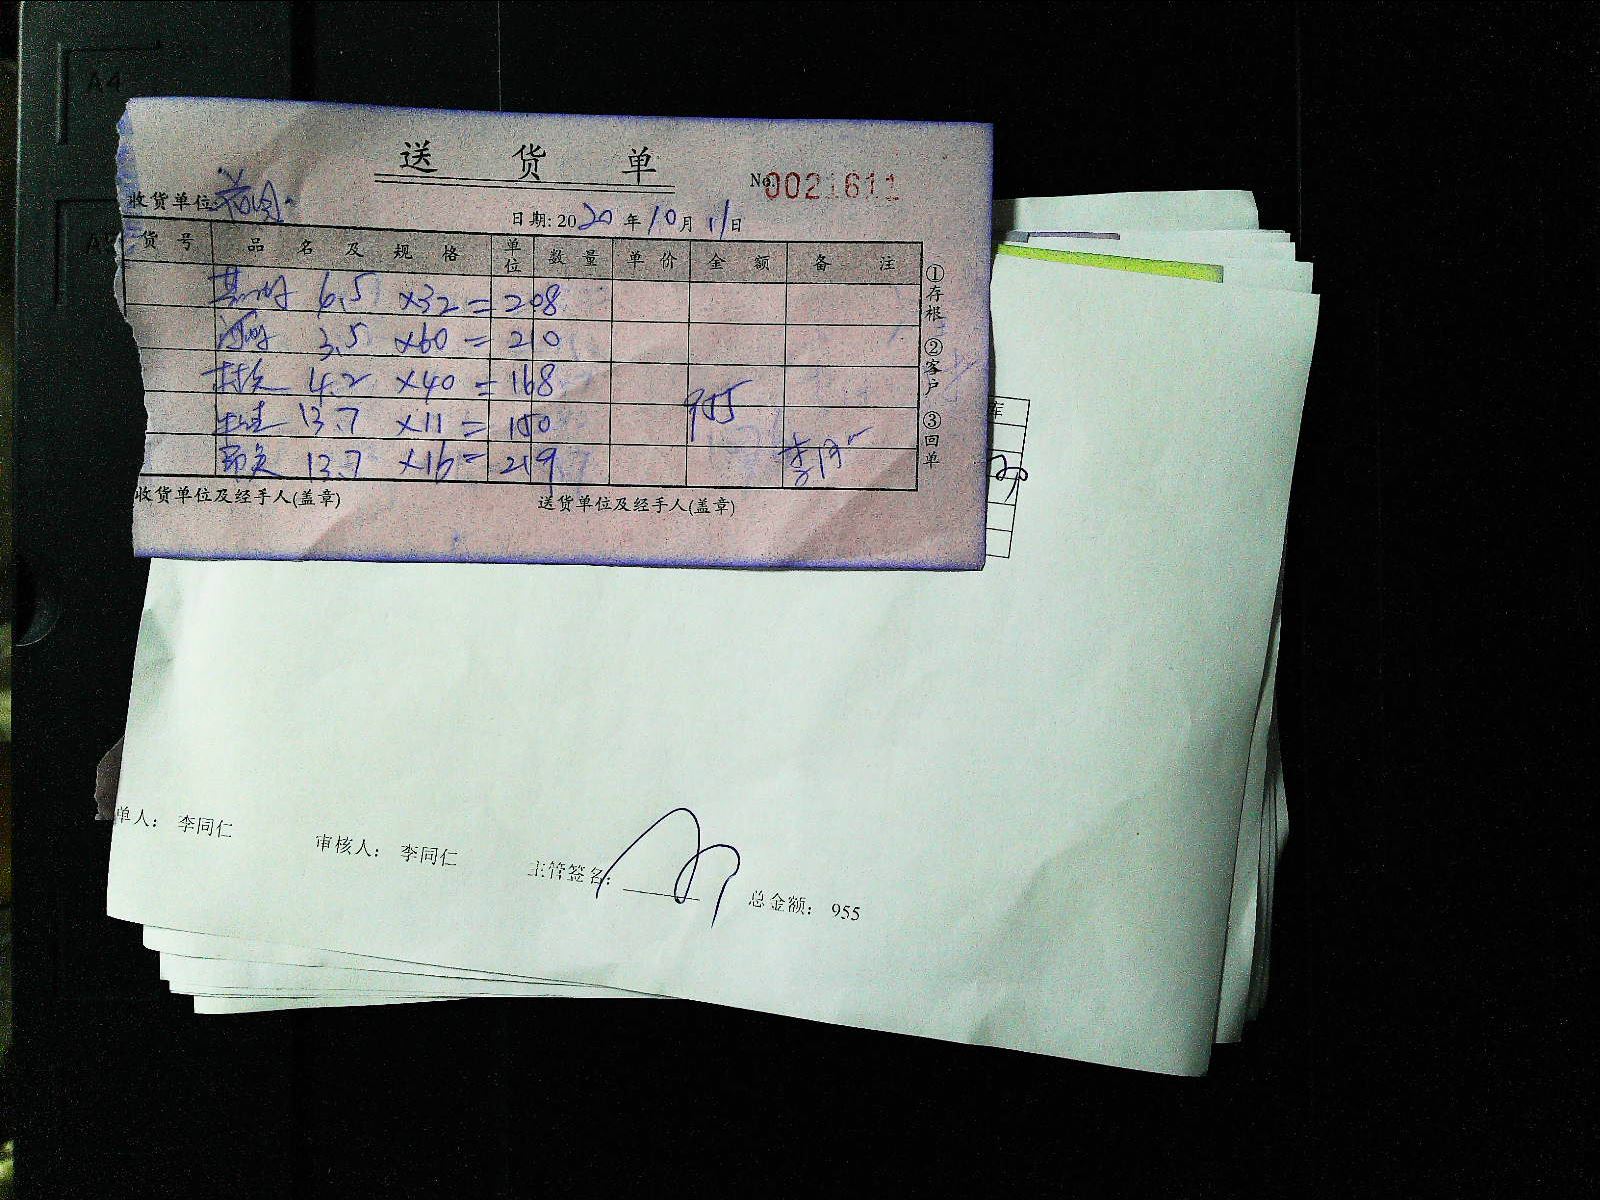 送 货 单
No 0021611
收货单位:
日期: 2020 年 10 月 11 日
货 号 品 名 及 规 格 单位 数 量 单 价 金 额 备 注
6.5 ×32 = 208
3.5 ×60 = 210
4.2 ×40 = 168
13.7 ×11 = 150
13.7 ×16 = 219
955
①存根 ②客户 ③回单
收货单位及经手人(盖章) 送货单位及经手人(盖章)
单人： 李同仁 审核人： 李同仁 主管签名： 总金额： 955
A4